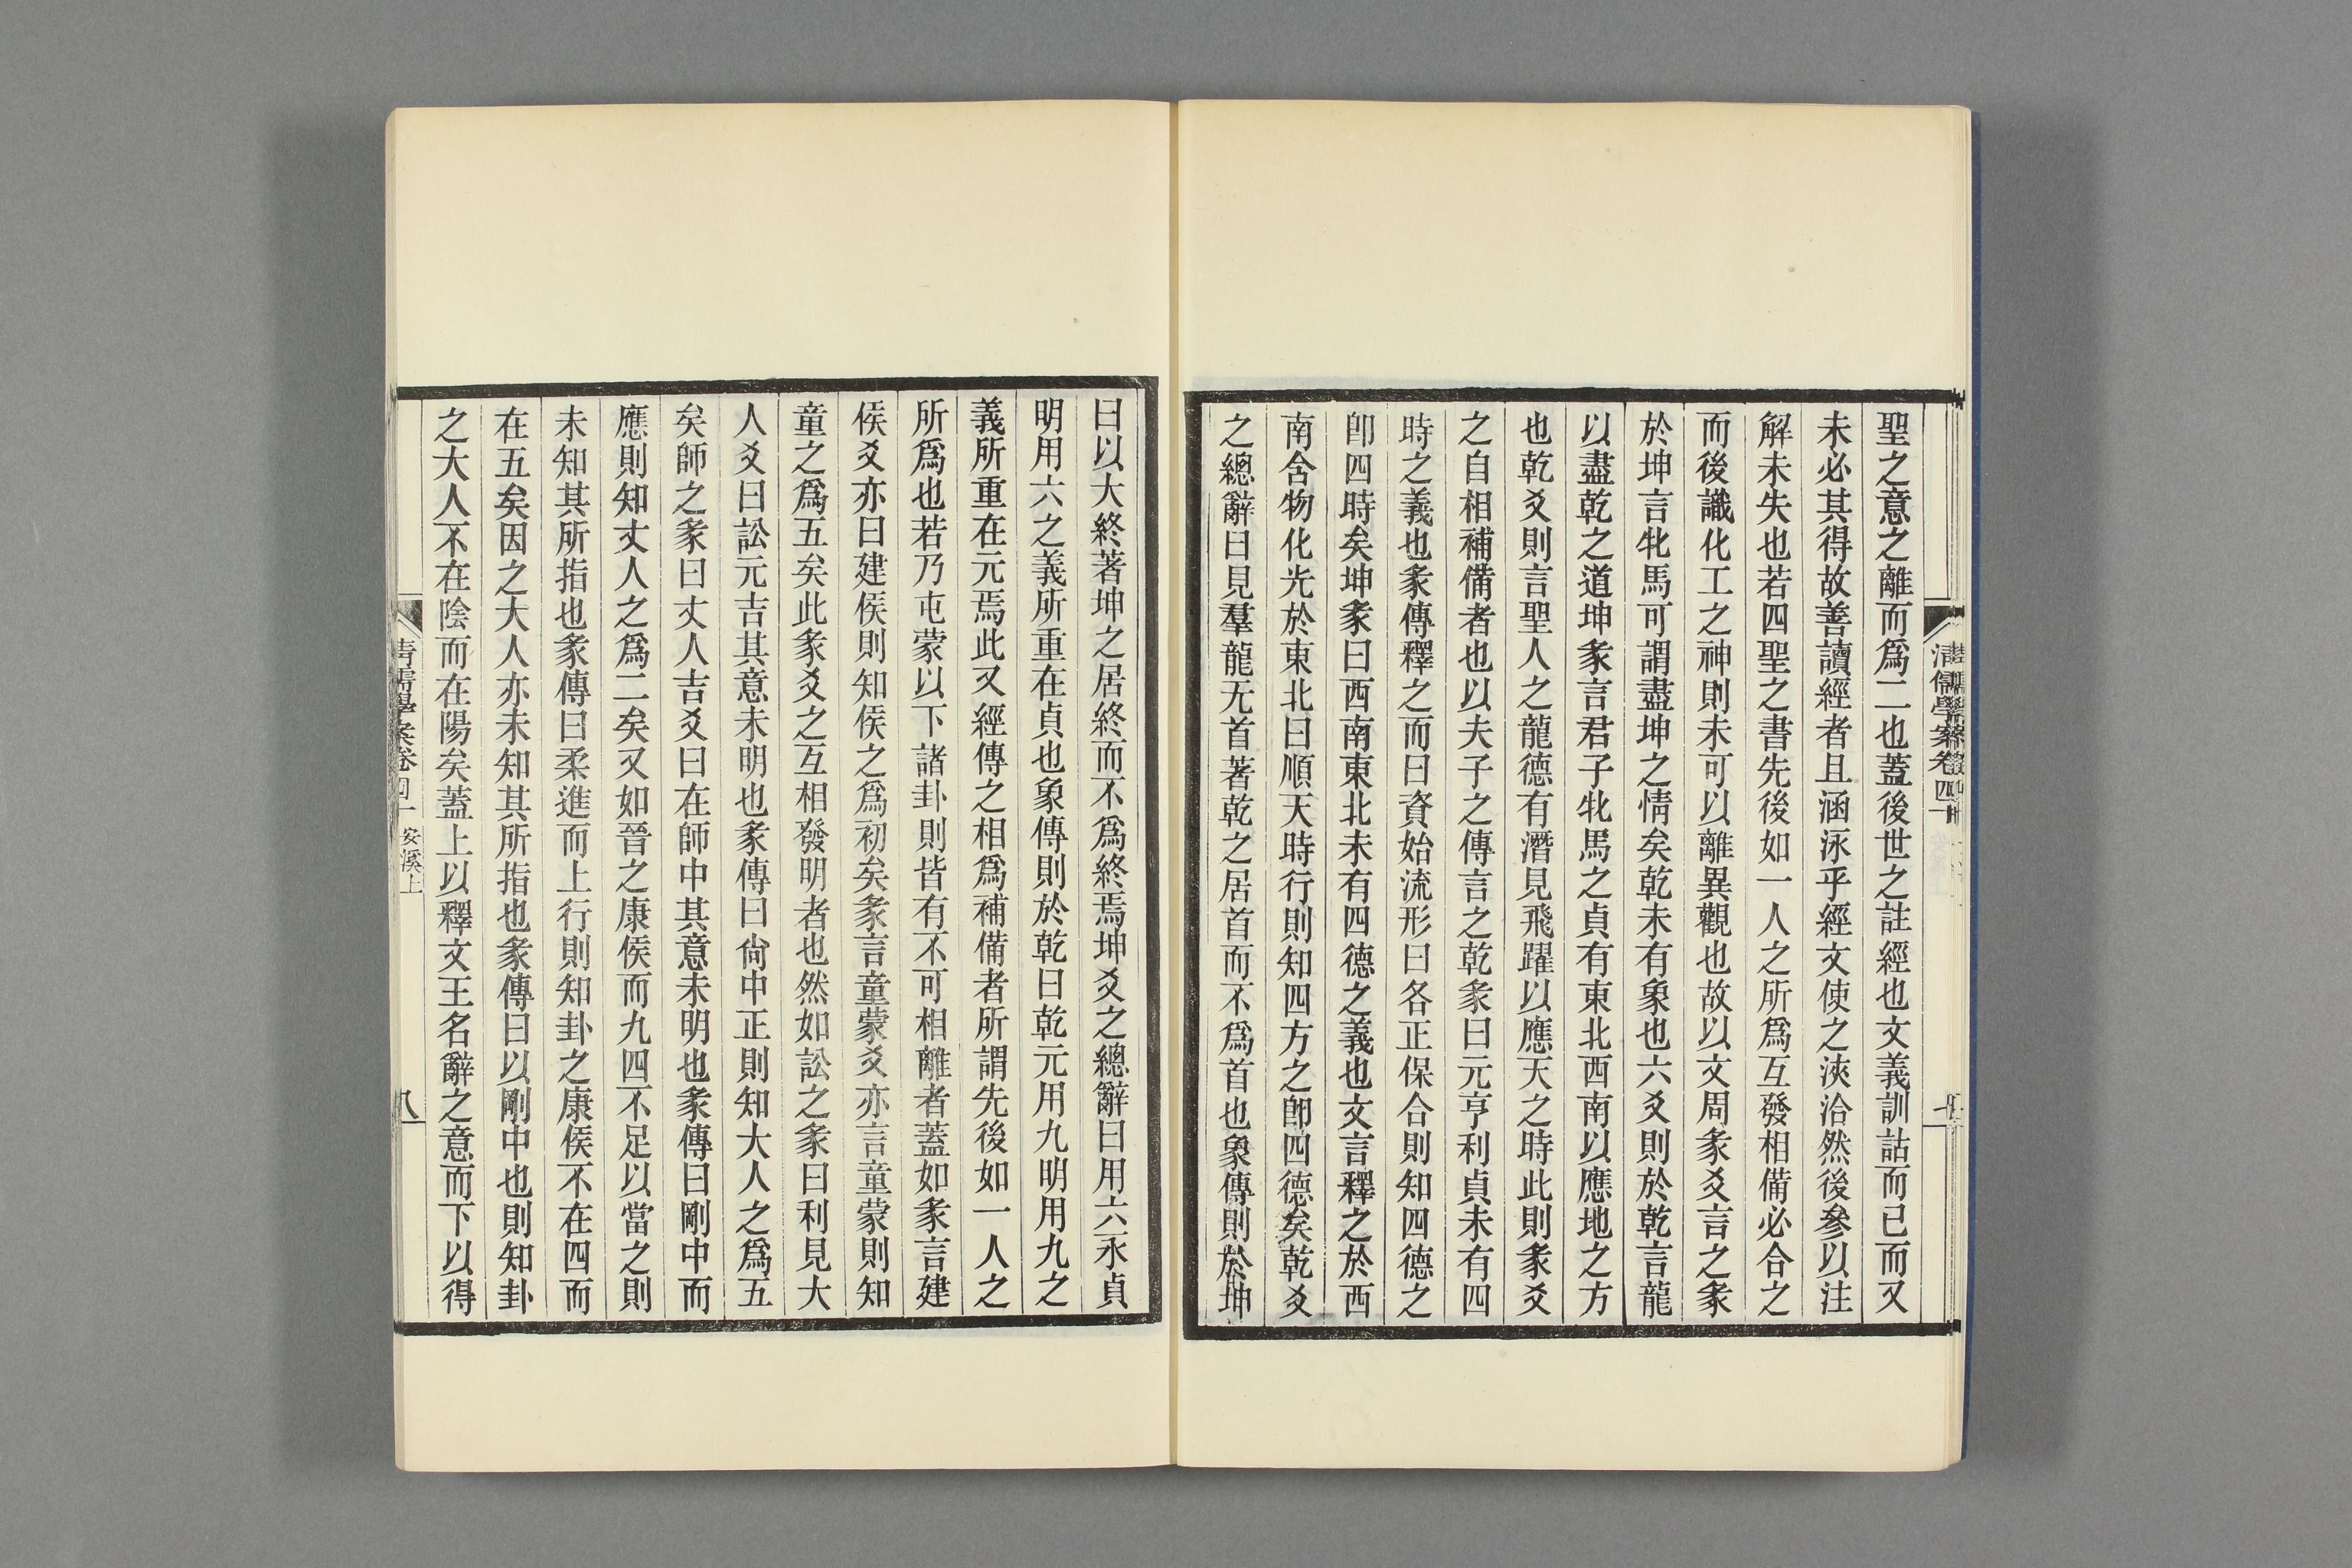 清儒學案卷四十
聖之意之離而爲二也蓋後世之註經也文義訓詁而已而又
未必其得故善讀經者且涵泳乎經文使之浹洽然後參以注
解未失也若四聖之書先後如一人之所爲互發相備必合之
而後識化工之神則未可以離異觀也故以文周彖爻言之彖
於坤言牝馬可謂盡坤之情矣乾未有象也六爻則於乾言龍
以盡乾之道坤彖言君子牝馬之貞有東北西南以應地之方
也乾爻則言聖人之龍德有潛見飛躍以應天之時此則彖爻
之自相補備者也以夫子之傳言之乾彖曰元亨利貞未有四
時之義也彖傳釋之而曰資始流形曰各正保合則知四德之
卽四時矣坤彖曰西南東北未有四德之義也文言釋之於西
南含物化光於東北曰順天時行則知四方之卽四德矣乾爻
之總辭曰見羣龍无首著乾之居首而不爲首也象傳則於坤
曰以大終著坤之居終而不爲終焉坤爻之總辭曰用六永貞
明用六之義所重在貞也象傳則於乾曰乾元用九明用九之
義所重在元焉此又經傳之相爲補備者所謂先後如一人之
所爲也若乃屯蒙以下諸卦則皆有不可相離者蓋如彖言建
侯爻亦曰建侯則知侯之爲初矣彖言童蒙爻亦言童蒙則知
童之爲五矣此彖爻之互相發明者也然如訟之彖曰利見大
人爻曰訟元吉其意未明也彖傳曰尙中正則知大人之爲五
矣師之彖曰丈人吉爻曰在師中其意未明也彖傳曰剛中而
應則知丈人之爲二矣又如晉之康侯而九四不足以當之則
未知其所指也彖傳曰柔進而上行則知卦之康侯不在四而
在五矣因之大人亦未知其所指也彖傳曰以剛中也則知卦
之大人不在陰而在陽矣蓋上以釋文王名辭之意而下以得
清儒學案卷四十 安溪上 八